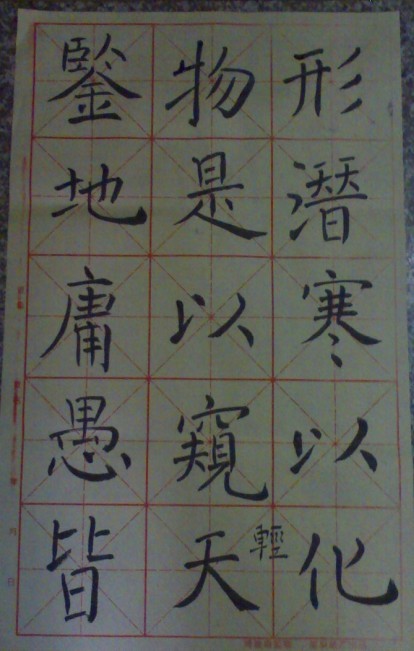 形潛寒以化
物是以窺天
輕
鑒地庸愚皆